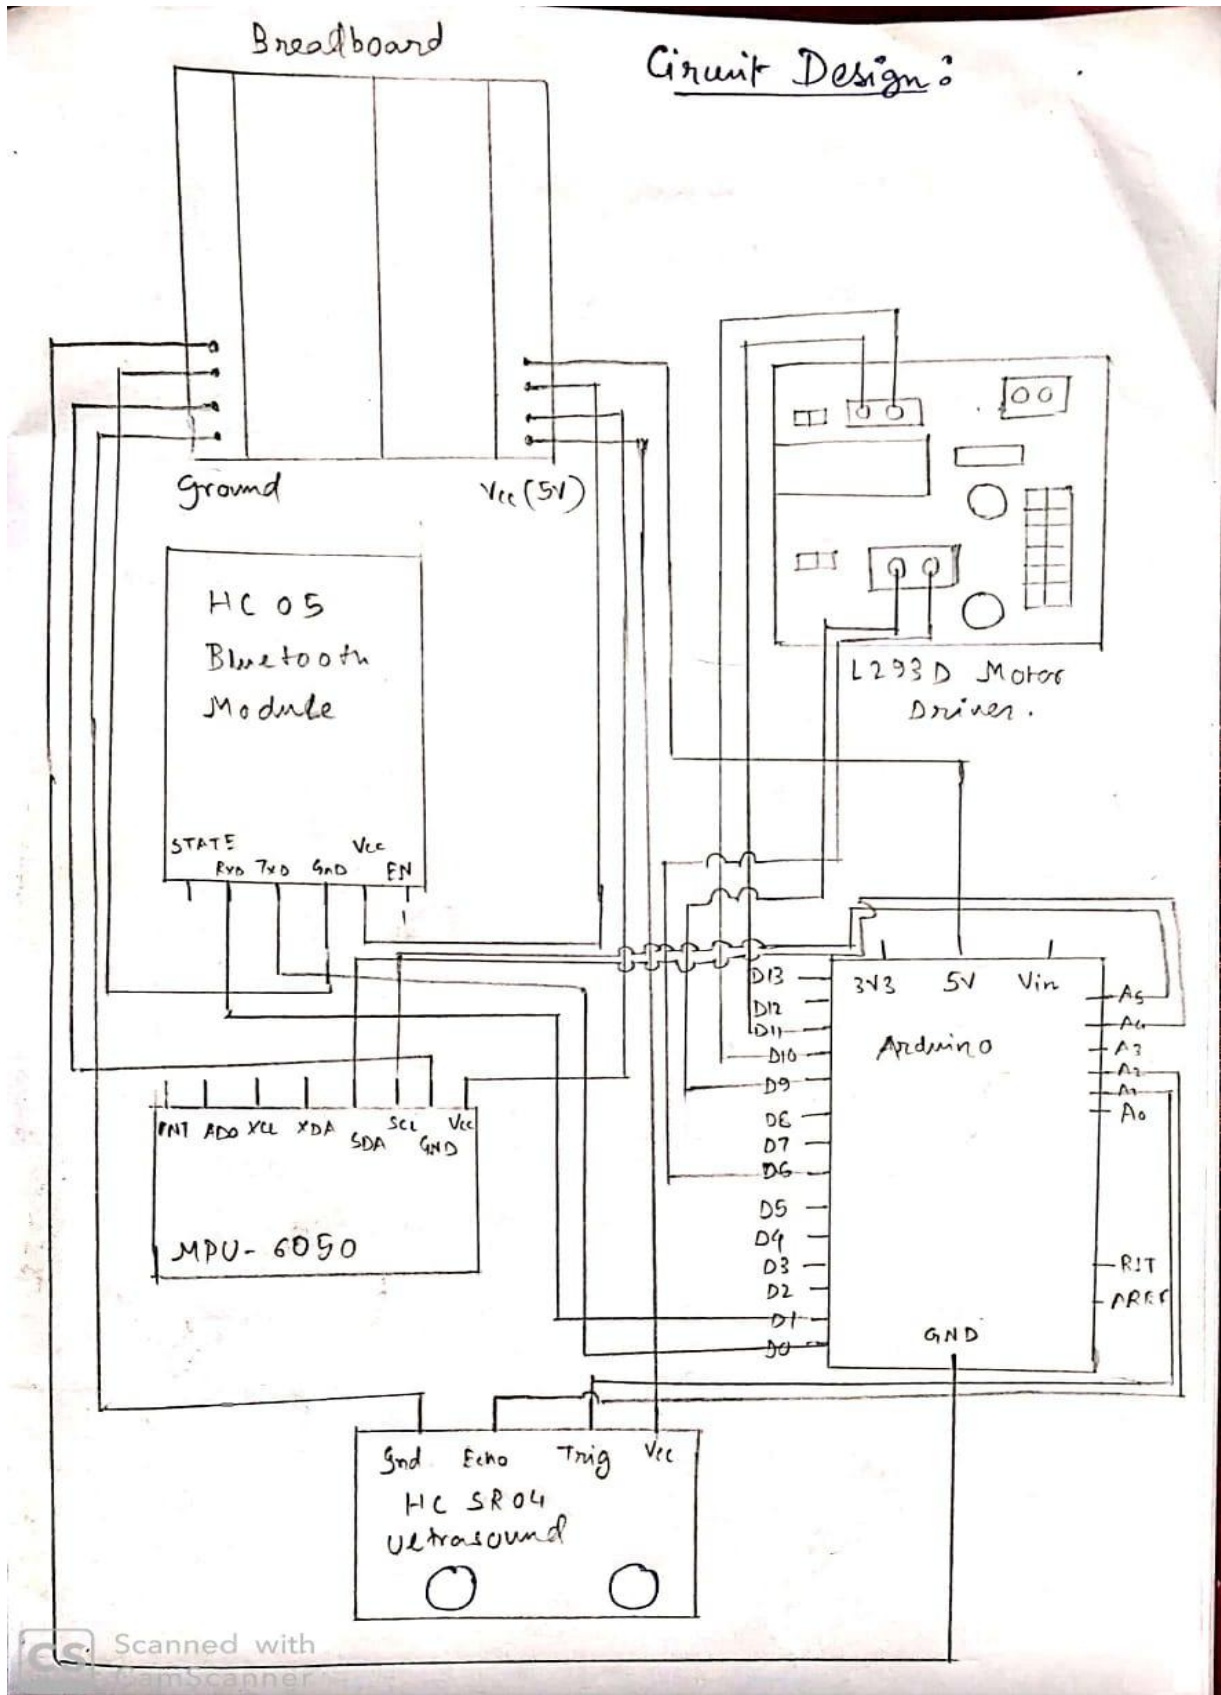 Breadboard
Circuit Design:
Ground
Vcc (5V)
HC 05
Bluetooth
Module
STATE
RXD TXD GND Vcc EN
L293D Motor
Driver.
3V3 5V Vin
Arduino
D13
D12
D11
D10
D9
D8
D7
D6
D5
D4
D3
D2
D1
D0
A5
A4
A3
A2
A1
A0
RST
AREF
GND
INT ADO XCL XDA SDA SCL GND Vcc
MPU-6050
Gnd Echo Trig Vcc
HC SR04
Ultrasound
CS Scanned with
CamScanner